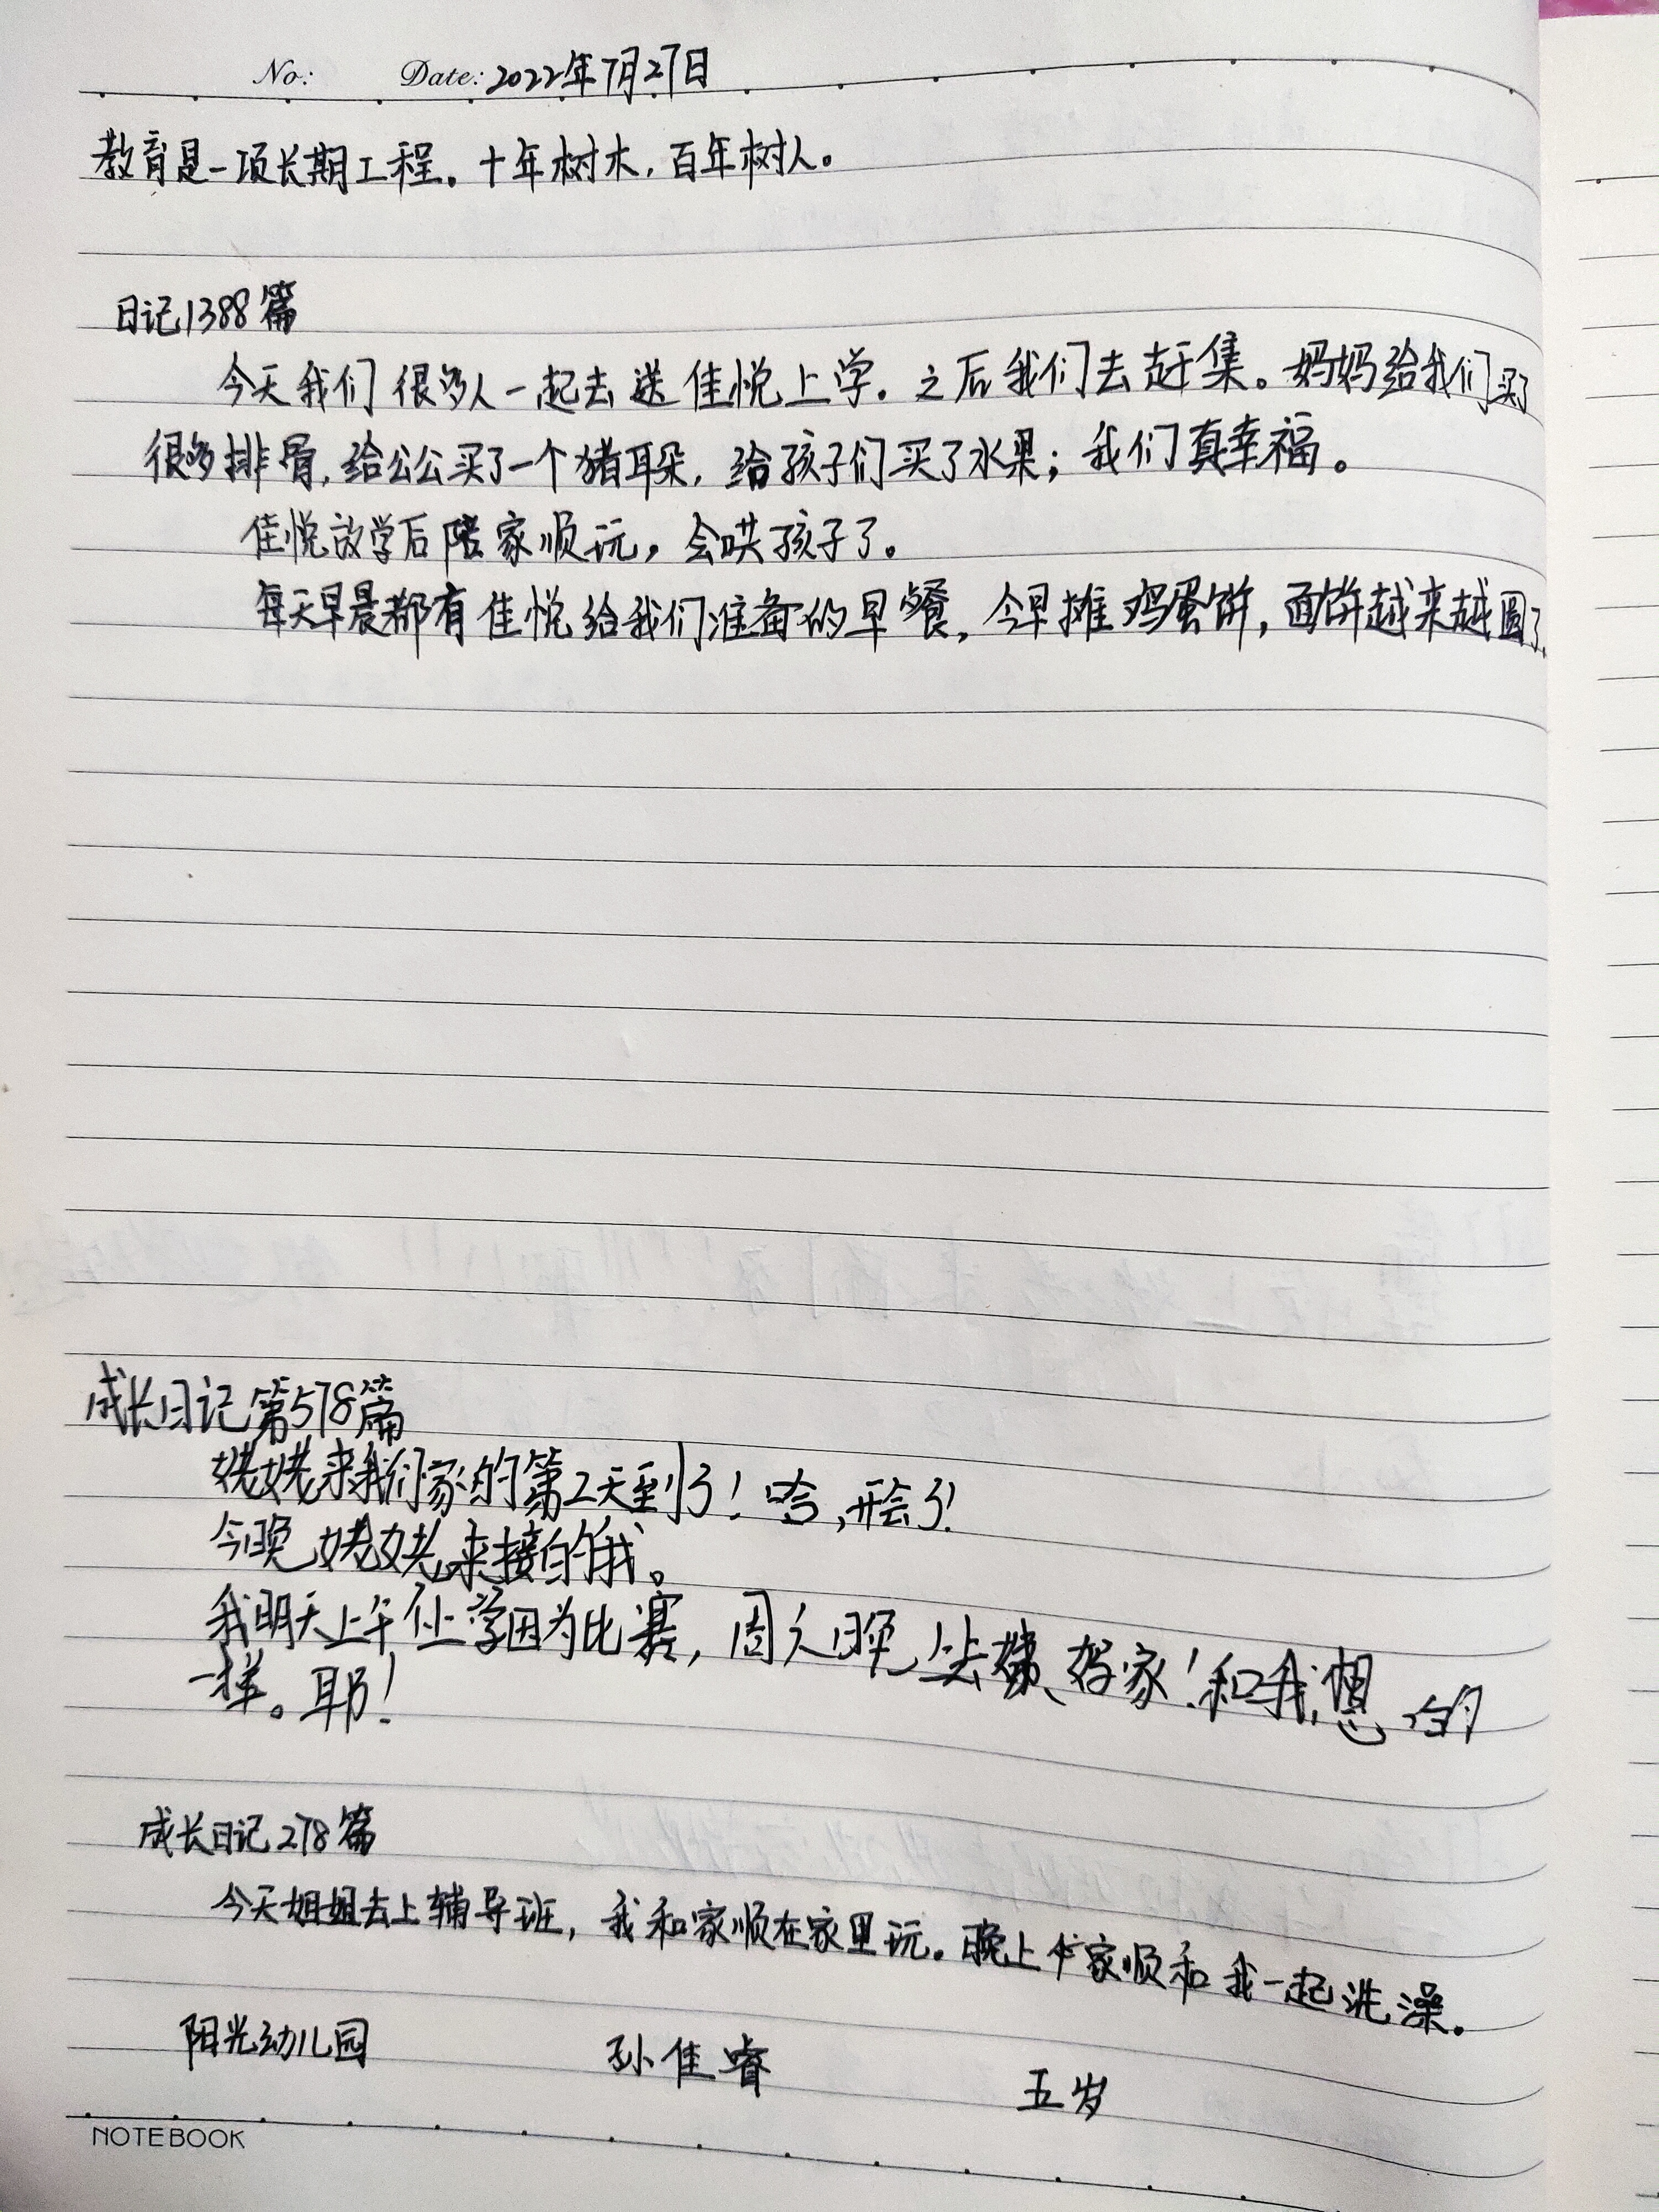 No: Date: 2022年7月27日
教育是一项长期工程。十年树木，百年树人。
日记1388篇
今天我们很多人一起去送佳悦上学。之后我们去赶集。妈妈给我们买了
很多排骨，给公公买了一个猪耳朵，给孩子们买了水果；我们真幸福。
佳悦放学后陪家顺玩，会哄孩子了。
每天早晨都有佳悦给我们准备的早餐，今早摊鸡蛋饼，面饼越来越圆了。
成长日记第578篇
姥姥来我们家的第2天到了！哈，开会了！
今晚姥姥来接的我。
我明天上午上学因为比赛，周六晚去姨姥家！和我想的
一样。耶！
成长日记278篇
今天姐姐去上辅导班，我和家顺在家里玩。晚上家顺和我一起洗澡。
阳光幼儿园 孙佳睿 五岁
NOTEBOOK